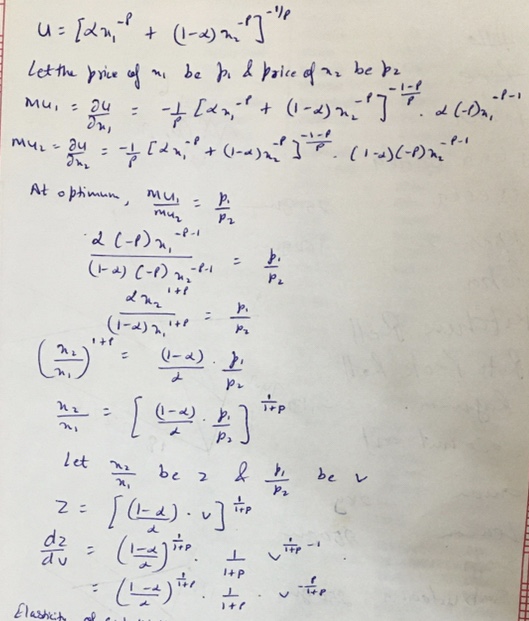 u = [αx₁^-ρ + (1-α)x₂^-ρ]^-1/ρ
Let the price of x₁ be p₁ & price of x₂ be p₂
MU₁ = ∂u/∂x₁ = -1/ρ [αx₁^-ρ + (1-α)x₂^-ρ]^(-1-ρ)/ρ · α(-ρ)x₁^-ρ-1
MU₂ = ∂u/∂x₂ = -1/ρ [αx₁^-ρ + (1-α)x₂^-ρ]^(-1-ρ)/ρ · (1-α)(-ρ)x₂^-ρ-1
At optimum, MU₁/MU₂ = p₁/p₂
α(-ρ)x₁^-ρ-1 / (1-α)(-ρ)x₂^-ρ-1 = p₁/p₂
αx₂^1+ρ / (1-α)x₁^1+ρ = p₁/p₂
(x₂/x₁)^1+ρ = (1-α)/α · p₁/p₂
x₂/x₁ = [(1-α)/α · p₁/p₂]^1/1+ρ
Let x₂/x₁ be z & p₁/p₂ be v
Z = [(1-α)/α · v]^1/1+ρ
dz/dv = (1-α/α)^1/1+ρ · 1/1+ρ v^1/1+ρ -1 .
= (1-α/α)^1/1+ρ · 1/1+ρ · v^-ρ/1+ρ
Elasticity of